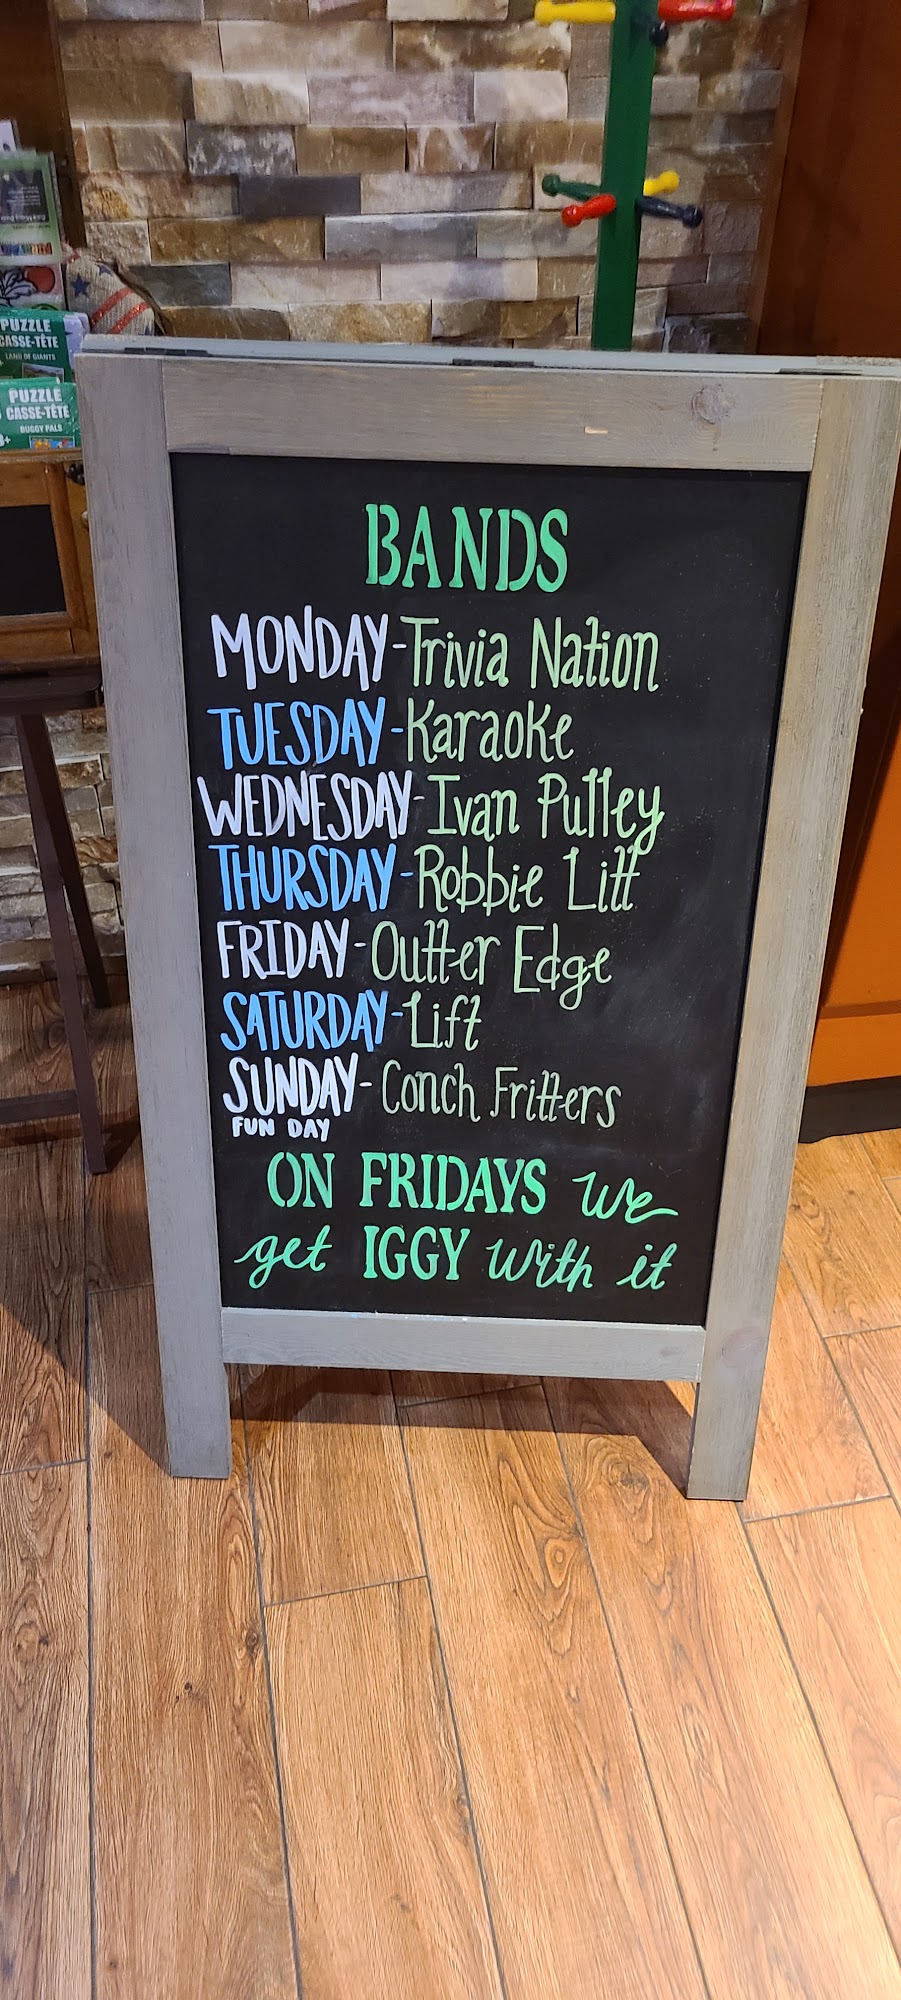 PUZZLE
CASSE-TÊTE
LAND OF GIANTS
PUZZLE
CASSE-TÊTE
BUGGY PALS
BANDS
MONDAY-Trivia Nation
TUESDAY-Karaoke
WEDNESDAY-Ivan Pulley
THURSDAY-Robbie Litt
FRIDAY-Outter Edge
SATURDAY-Lift
SUNDAY-Conch Fritters
FUN DAY
ON FRIDAYS we
get IGGY with it